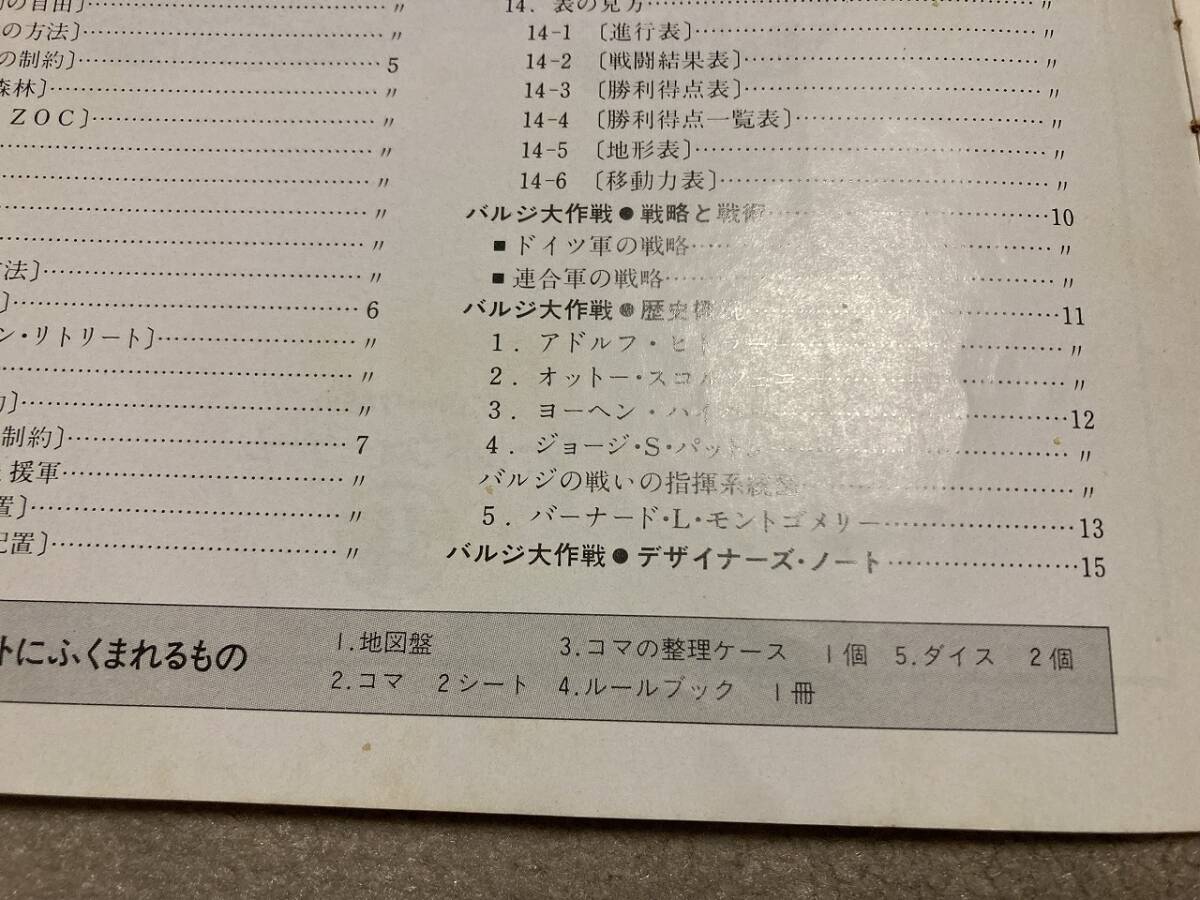 の自由〕……〃
の方法〕……〃
の制約〕……5
森林〕……〃
ＺＯＣ〕……〃
……〃
……〃
……〃
……〃
方法〕……〃
〕……6
ン・リトリート〕……〃
……〃
〕……〃
制約〕……7
援軍……〃
置〕……〃
配置〕……〃
14. 表の見方……〃
14-1 〔進行表〕……〃
14-2 〔戦闘結果表〕……〃
14-3 〔勝利得点表〕……〃
14-4 〔勝利得点一覧表〕……〃
14-5 〔地形表〕……〃
14-6 〔移動力表〕……〃
バルジ大作戦●戦略と戦術……10
■ドイツ軍の戦略……〃
■連合軍の戦略……〃
バルジ大作戦●歴史……11
1. アドルフ・ヒトラー……〃
2. オットー・スコルツ……〃
3. ヨーヘン・パイ……12
4. ジョージ・S・パット……〃
バルジの戦いの指揮系統……〃
5. バーナード・L・モントゴメリー……13
バルジ大作戦●デザイナーズ・ノート……15
トにふくまれるもの
1.地図盤 3.コマの整理ケース 1個 5.ダイス 2個
2.コマ 2シート 4.ルールブック 1冊